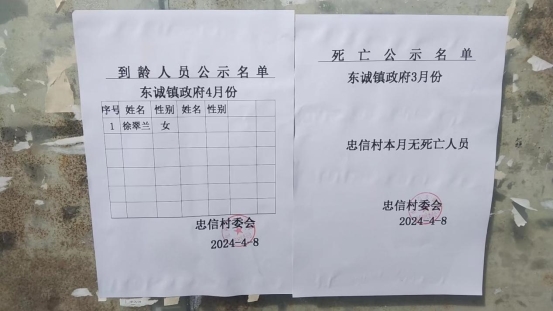 到龄人员公示名单
东诚镇政府4月份
序号 姓名 性别 姓名 性别
1 徐翠兰 女
忠信村委会
2024-4-8
死亡公示名单
东诚镇政府3月份
忠信村本月无死亡人员
忠信村委会
2024-4-8